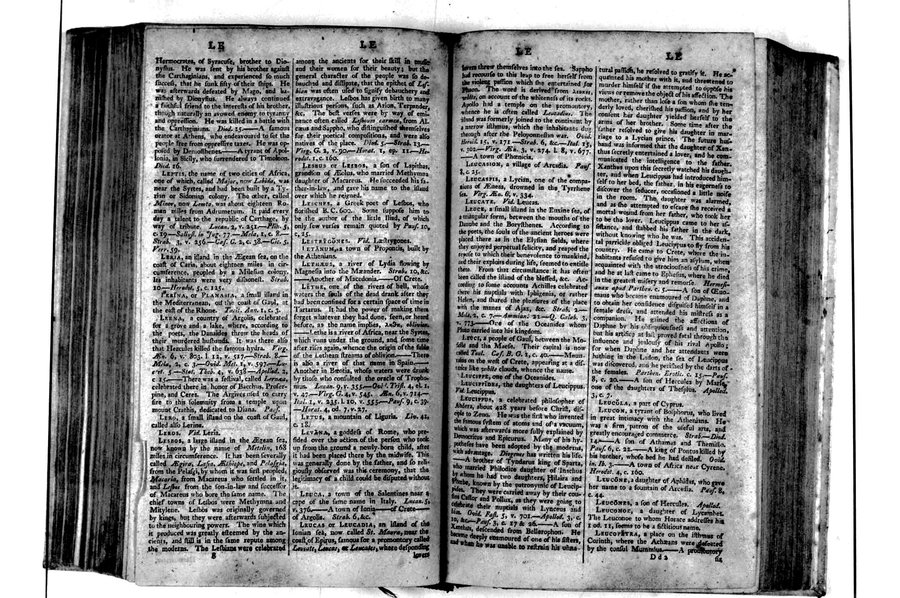 LE
Hermocrates, of Syracuse, brother to Dio-
nysius. He was sent by his brother against
the Carthaginians, and experienced so much
success, that he sunk fifty of their ships. He
was afterwards defeated by Mago, and ba-
nished by Dionysius. He always continued
a faithful friend to the interests of his brother,
though naturally an avowed enemy to tyranny
and oppression. He was killed in a battle with
the Carthaginians. Diod. 15.—A famous
orator at Athens, who endeavoured to set the
people free from oppressive taxes. He was op-
posed by Demosthenes.—A tyrant of Apol-
lonia, in Sicily, who surrendered to Timoleon.
Diod. 16.
LEPTIS, the name of two cities of Africa,
one of which, called Major, now Lebida, was
near the Syrtes, and had been built by a Ty-
rian or Sidonian colony. The other, called
Minor, now Lemta, was about eighteen Ro-
man miles from Adrumetum. It paid every
day a talent to the republic of Carthage, by
way of tribute. Lucan. 2, v. 251.—Plin. 5,
c. 19.—Sallust. in Jug. 77.—Mela, 1, c. 8.—
Strab. 3, v. 256.—Cæs. C. 2, c. 38.—Cic. 5,
Verr. 59.
LERIA, an island in the Ægean sea, on the
coast of Caria, about eighteen miles in cir-
cumference, peopled by a Milesian colony.
Its inhabitants were very dishonest. Strab.
10.—Herodot. 5, c. 125.
LERINA, or PLANASIA, a small island in
the Mediterranean, on the coast of Gaul, at
the east of the Rhone. Tacit. Ann. 1, c. 3.
LERNA, a country of Argolis, celebrated
for a grove and a lake, where, according to
the poets, the Danaides threw the heads of
their murdered husbands. It was there also
that Hercules killed the famous hydra. Virg.
Æn. 6, v. 803. l. 12, v. 517.—Strab. 8.—
Mela, 2, c. 3.—Ovid. Met. 1, v. 597.—Lu-
cret. 5.—Stat. Theb. 4, v. 638.—Apollod. 2,
c. 15.—There was a festival, called Lernæa,
celebrated there in honor of Bacchus, Proser-
pine, and Ceres. The Argives used to carry
fire to this solemnity from a temple upon
mount Crathis, dedicated to Diana. Paus.
LERO, a small island on the coast of Gaul,
called also Lerina.
LEROS. Vid. Leria.
LESBOS, a large island in the Ægean sea,
now known by the name of Metelin, 168
miles in circumference. It has been severally
called Ægira, Lasia, Æthiope, and Pelasgia,
from the Pelasgi, by whom it was first peopled,
Macaria, from Macareus who settled in it,
and Lesbos from the son-in-law and successor
of Macareus who bore the same name. The
chief towns of Lesbos were Methymna and
Mitylene. Lesbos was originally governed
by kings, but they were afterwards subjected
to the neighbouring powers. The wine which
it produced was greatly esteemed by the an-
cients, and still is in the same repute among
the moderns. The Lesbians were celebrated
LE
among the ancients for their skill in music
and their women for their beauty; but the
general character of the people was so de-
bauched and dissipate, that the epithet of Les-
bian was often used to signify debauchery and
extravagance. Lesbos has given birth to many
illustrious persons, such as Arion, Terpander,
&c. The best verses were by way of emi-
nence often called Lesboum carmen, from Al-
cæus and Sappho, who distinguished themselves
for their poetical compositions, and were also
natives of the place. Diod. 5.—Strab. 13.—
Virg. G. 2, v. 90.—Horat. 1, ep. 11.—He-
rodot. 1, c. 160.
LESBUS or LESBOS, a son of Lapithas,
grandson of Æolus, who married Methymna
daughter of Macareus. He succeeded his fa-
ther-in-law, and gave his name to the island
over which he reigned.
LESCHES, a Greek poet of Lesbos, who
florished B.C. 600. Some suppose him to
be the author of the little Iliad, of which
only few verses remain quoted by Paus. 10,
c. 25.
LESTRYGONES. Vid. Læstrygones.
LETANUM, a town of Propontis, built by
the Athenians.
LETHÆUS, a river of Lydia flowing by
Magnesia into the Mæander. Strab. 10, &c.
—Another of Macedonia.—Of Crete.
LETHE, one of the rivers of hell, whose
waters the souls of the dead drank after they
had been confined for a certain space of time in
Tartarus. It had the power of making them
forget whatever they had done, seen, or heard
before, as the name implies, ληθη, oblivion.
—Lethe is a river of Africa, near the Syrtes,
which runs under the ground, and some time
after rises again, whence the origin of the fable
of the Lethean streams of oblivion.—There
is also a river of that name in Spain.—
Another in Bœotia, whose waters were drunk
by those who consulted the oracle of Tropho-
nius. Lucan. 9, v. 355.—Ovid. Trist. 4, el. 1,
v. 47.—Virg. G. 4, v. 545. Æn. 6, v. 714.—
Ital. 1, v. 235. l. 10, v. 555.—Paus. 9, c. 39.
—Horat. 4, od. 7, v. 27.
LETUS, a mountain of Liguria. Liv. 41,
c. 18.
LEVANA, a goddess of Rome, who pre-
sided over the action of the person who took
up from the ground a newly-born child, after
it had been placed there by the midwife. This
was generally done by the father, and so reli-
giously observed was this ceremony, that the
legitimacy of a child could be disputed without
it.
LEUCA, a town of the Salentines near a
cape of the same name in Italy. Lucan. 5,
v. 376.—A town of Ionia—of Crete—
of Argolis. Strab. 6, &c.
LEUCAS or LEUCADIA, an island of the
Ionian sea, now called St. Maura, near the
coast of Epirus, famous for a promontory called
Leucate, Leucas, or Leucates, where desponding
lovers
LE
lovers threw themselves into the sea. Sappho
had recourse to this leap to free herself from
the violent passion which she entertained for
Phaon. The word is derived from λευκος,
white, on account of the whiteness of its rocks.
Apollo had a temple on the promontory,
whence he is often called Leucadius. The
island was formerly joined to the continent by
a narrow isthmus, which the inhabitants dug
through after the Peloponnesian war. Ovid.
Heroid. 15, v. 171.—Strab. 6, &c.—Ital. 15,
v. 302.—Virg. Æn. 3, v. 274. l. 8, v. 677.
—A town of Phœnicia.
LEUCASION, a village of Arcadia. Paus.
8, c. 25.
LEUCASPIS, a Lycian, one of the compa-
nions of Æneas, drowned in the Tyrrhene
sea. Virg. Æn. 6, v. 334.
LEUCATE. Vid. Leucas.
LEUCE, a small island in the Euxine sea, of
a triangular form, between the mouths of the
Danube and the Borysthenes. According to
the poets, the souls of the ancient heroes were
placed there as in the Elysian fields, where
they enjoyed perpetual felicity, and reaped the
repose to which their benevolence to mankind,
and their exploits during life, seemed to entitle
them. From that circumstance it has often
been called the island of the blessed, &c. Ac-
cording to some accounts Achilles celebrated
there his nuptials with Iphigenia, or rather
Helen, and shared the pleasures of the place
with the manes of Ajax, &c. Strab. 2.—
Mela, 2, c. 7.—Ammian. 22.—Q. Calab. 3,
v. 773.—One of the Oceanides whom
Pluto carried into his kingdom.
LEUCI, a people of Gaul, between the Mo-
selle and the Maese. Their capital is now
called Toul. Cæs. B. G. 1, c. 40.—Moun-
tains on the west of Crete, appearing at a dis-
tance like white clouds, whence the name.
LEUCIPPE, one of the Oceanides.
LEUCIPPIDES, the daughters of Leucippus.
Vid. Leucippus.
LEUCIPPUS, a celebrated philosopher of
Abdera, about 428 years before Christ, disci-
ple to Zeno. He was the first who invented
the famous system of atoms and of a vacuum,
which was afterwards more fully explained by
Democritus and Epicurus. Many of his hy-
potheses have been adopted by the moderns,
with advantage. Diogenes has written his life.
—A brother of Tyndarus king of Sparta,
who married Philodice daughter of Inachus
by whom he had two daughters, Hilaira and
Phœbe, known by the patronymic of Leucip-
pides. They were carried away by their cou-
sins Castor and Pollux, as they were going to
celebrate their nuptials with Lynceus and
Idas. Ovid. Fast. 5, v. 701.—Apollod. 3, c.
10, &c.—Paus. 3, c. 17 & 26.—A son of
Xanthus, descended from Bellerophon. He
became deeply enamoured of one of his sisters,
and when he was unable to restrain his unna-
LE
tural passion, he resolved to gratify it. He ac-
quainted his mother with it, and threatened to
murder himself if she attempted to oppose his
views or remove the object of his affection. The
mother, rather than lose a son whom she ten-
derly loved, cherished his passion, and by her
consent her daughter yielded herself to the
arms of her brother. Some time after the
father resolved to give his daughter in mar-
riage to a Lycian prince. The future hus-
band was informed that the daughter of Xan-
thus secretly entertained a lover, and he com-
municated the intelligence to the father.
Xanthus upon this secretly watched his daugh-
ter, and when Leucippus had introduced him-
self to her bed, the father, in his eagerness to
discover the seducer, occasioned a little noise
in the room. The daughter was alarmed,
and as she attempted to escape she received a
mortal wound from her father, who took her
to be the lover. Leucippus came to her as-
sistance, and stabbed his father in the dark,
without knowing who he was. This acciden-
tal parricide obliged Leucippus to fly from his
country. He came to Crete, where the in-
habitants refused to give him an asylum, when
acquainted with the atrociousness of his crime,
and he at last came to Ephesus, where he died
in the greatest misery and remorse. Hermesi-
anax apud Parthen. c. 5.—A son of Œno-
maus who became enamoured of Daphne, and
to obtain her confidence disguised himself in a
female dress, and attended his mistress as a
companion. He gained the affections of
Daphne by his obsequiousness and attention,
but his artifice at last proved fatal through the
influence and jealousy of his rival Apollo;
for when Daphne and her attendants were
bathing in the Ladon, the sex of Leucippus
was discovered, and he perished by the darts of
the females. Parthen. Erotic. c. 15.—Paus.
8, c. 20.—A son of Hercules by Marse,
one of the daughters of Thespius. Apollod.
3, c. 7.
LEUCOLA, a part of Cyprus.
LEUCON, a tyrant of Bosphorus, who lived
in great intimacy with the Athenians. He
was a firm patron of the useful arts, and
greatly encouraged commerce. Strab.—Diod.
14.—A son of Athamas and Themisto.
Paus. 6, c. 22.—A king of Pontus killed by
his brother, whose bed he had defiled. Ovid.
in Ib. 3.—A town of Africa near Cyrene.
Herodot. 4, c. 160.
LEUCONE, a daughter of Aphidas, who gave
her name to a fountain of Arcadia. Paus. 8,
c. 44.
LEUCONES, a son of Hercules. Apollod.
LEUCONOE, a daughter of Lycambes.
The Leuconoe to whom Horace addresses his
1 od. 11, seems to be a fictitious name.
LEUCOPETRA, a place on the isthmus of
Corinth, where the Achæans were defeated
by the consul Mummius.—A promontory
D d 2